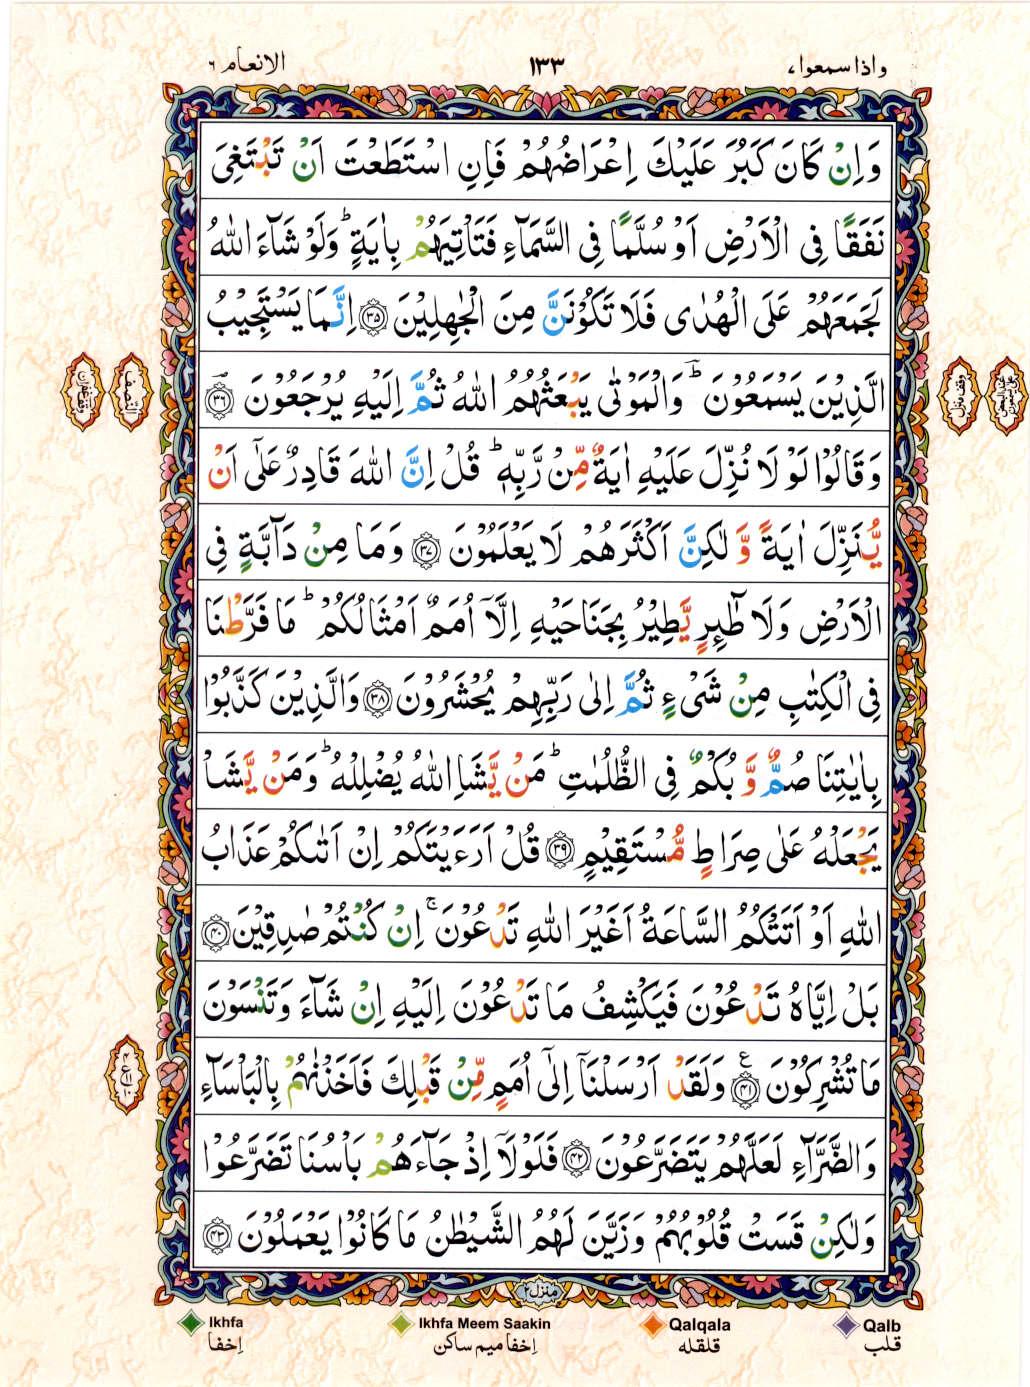 واذا سمعوا ٧
١٣٣
الانعام ٦
وَاِنْ كَانَ كَبُرَ عَلَيْكَ اِعْرَاضُهُمْ فَاِنِ اسْتَطَعْتَ اَنْ تَبْتَغِىَ
نَفَقًا فِى الْاَرْضِ اَوْ سُلَّمًا فِى السَّمَآءِ فَتَاْتِيَهُمْ بِاٰيَةٍ ؕ وَلَوْ شَآءَ اللّٰهُ
لَجَمَعَهُمْ عَلَى الْهُدٰى فَلَا تَكُوْنَنَّ مِنَ الْجٰهِلِيْنَ ﴿۳۵﴾ اِنَّمَا يَسْتَجِيْبُ
الَّذِيْنَ يَسْمَعُوْنَ ؕ وَالْمَوْتٰى يَبْعَثُهُمُ اللّٰهُ ثُمَّ اِلَيْهِ يُرْجَعُوْنَ ﴿۳۶﴾
وَقَالُوْا لَوْ لَا نُزِّلَ عَلَيْهِ اٰيَةٌ مِّنْ رَّبِّهٖ ؕ قُلْ اِنَّ اللّٰهَ قَادِرٌ عَلٰٓى اَنْ
يُّنَزِّلَ اٰيَةً وَّ لٰكِنَّ اَكْثَرَهُمْ لَا يَعْلَمُوْنَ ﴿۳۷﴾ وَمَا مِنْ دَآبَّةٍ فِى
الْاَرْضِ وَلَا طٰٓئِرٍ يَّطِيْرُ بِجَنَاحَيْهِ اِلَّاۤ اُمَمٌ اَمْثَالُكُمْ ؕ مَا فَرَّطْنَا
فِى الْكِتٰبِ مِنْ شَىْءٍ ثُمَّ اِلٰى رَبِّهِمْ يُحْشَرُوْنَ ﴿۳۸﴾ وَالَّذِيْنَ كَذَّبُوْا
بِاٰيٰتِنَا صُمٌّ وَّ بُكْمٌ فِى الظُّلُمٰتِ ؕ مَنْ يَّشَاِ اللّٰهُ يُضْلِلْهُ ؕ وَمَنْ يَّشَاْ
يَجْعَلْهُ عَلٰى صِرَاطٍ مُّسْتَقِيْمٍ ﴿۳۹﴾ قُلْ اَرَءَيْتَكُمْ اِنْ اَتٰٮكُمْ عَذَابُ
اللّٰهِ اَوْ اَتَتْكُمُ السَّاعَةُ اَغَيْرَ اللّٰهِ تَدْعُوْنَ ۚ اِنْ كُنْتُمْ صٰدِقِيْنَ ﴿۴۰﴾
بَلْ اِيَّاهُ تَدْعُوْنَ فَيَكْشِفُ مَا تَدْعُوْنَ اِلَيْهِ اِنْ شَآءَ وَتَنْسَوْنَ
مَا تُشْرِكُوْنَ ﴿۴۱﴾ ع وَلَقَدْ اَرْسَلْنَاۤ اِلٰٓى اُمَمٍ مِّنْ قَبْلِكَ فَاَخَذْنٰهُمْ بِالْبَاْسَآءِ
وَالضَّرَّآءِ لَعَلَّهُمْ يَتَضَرَّعُوْنَ ﴿۴۲﴾ فَلَوْلَاۤ اِذْ جَآءَهُمْ بَاْسُنَا تَضَرَّعُوْا
وَلٰكِنْ قَسَتْ قُلُوْبُهُمْ وَزَيَّنَ لَهُمُ الشَّيْطٰنُ مَا كَانُوْا يَعْمَلُوْنَ ﴿۴۳﴾
منزل ٢
Ikhfa
Ikhfa Meem Saakin
Qalqala
Qalb
اِخفا
اِخفا میم ساکن
قلقله
قلب